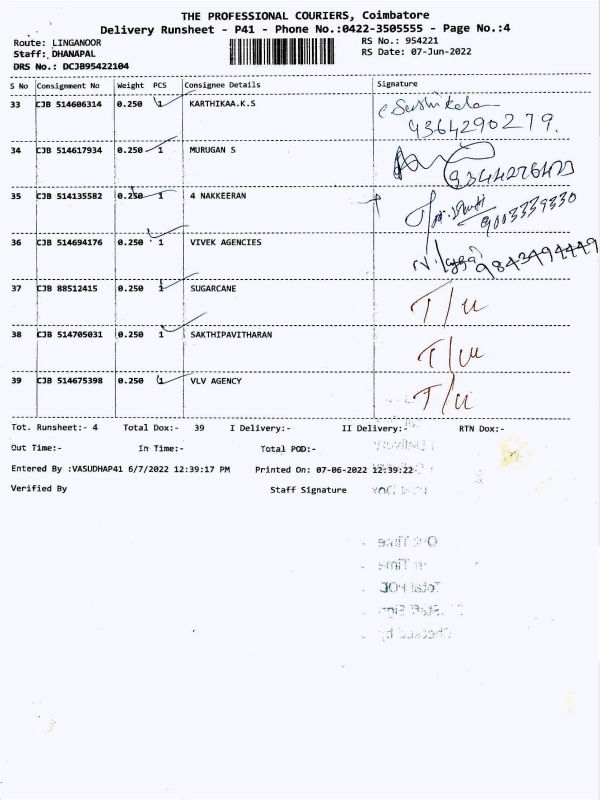 THE PROFESSIONAL COURIERS, Coimbatore
Delivery Runsheet - P41 - Phone No.:0422-3505555 - Page No.:4
Route: LINGANOOR RS No.: 954221
Staff: DHANAPAL RS Date: 07-Jun-2022
DRS No.: DCJB95422104
S No Consignment No Weight PCS Consignee Details Signature
33 CJB 514606314 0.250 1 KARTHIKAA.K.S Sushikala
9364290279.
34 CJB 514617934 0.250 1 MURUGAN S
35 CJB 514135582 0.250 1 4 NAKKEERAN
9003339330
36 CJB 514694176 0.250 1 VIVEK AGENCIES
9843494449
37 CJB 88512415 0.250 1 SUGARCANE T/U
38 CJB 514705031 0.250 1 SAKTHIPAVITHARAN T/U
39 CJB 514675398 0.250 1 VLV AGENCY T/U
Tot. Runsheet:- 4 Total Dox:- 39 I Delivery:- II Delivery:- RTN Dox:-
Out Time:- In Time:- Total POD:-
Entered By :VASUDHAP41 6/7/2022 12:39:17 PM Printed On: 07-06-2022 12:39:22
Verified By Staff Signature
Out Time
In Time
Total POD
Staff Sign
Checked by